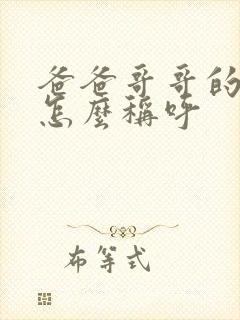 爸爸哥哥的
怎麼稱呼
布等式